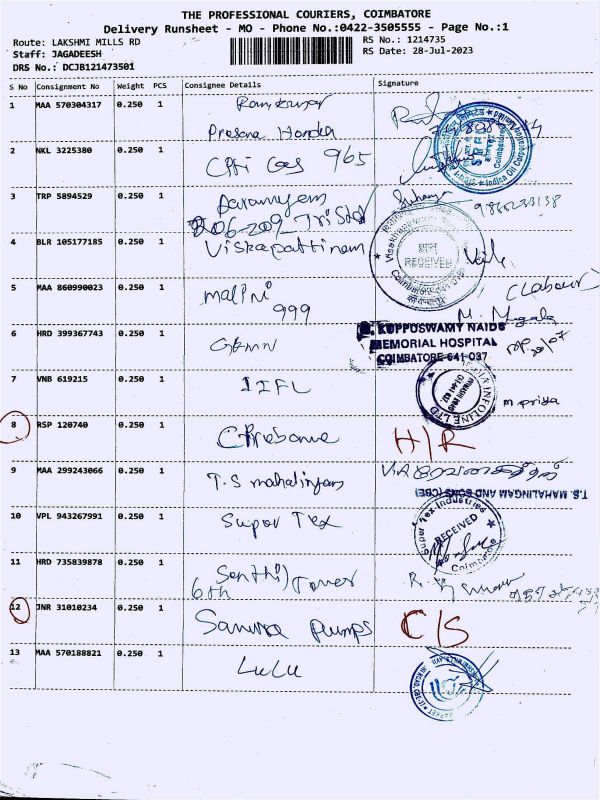 THE PROFESSIONAL COURIERS, COIMBATORE
Delivery Runsheet - MO - Phone No.:0422-3505555 - Page No.:1
Route: LAKSHMI MILLS RD
RS No.: 1214735
Staff: JAGADEESH
RS Date: 28-Jul-2023
DRS No.: DCJB121473501
S No Consignment No Weight PCS Consignee Details Signature
1 MAA 570304317 0.250 1 Ramkumar
Prasana Honda
2 NKL 3225380 0.250 1 Gas 965
Indian Oil Corporation
3 TRP 5894529 0.250 1
206-209 Tristar
9865233138
4 BLR 105177185 0.250 1 Viskapattinam
RECEIVED
5 MAA 860990023 0.250 1 malini
999
(Labour)
M. Mugala
6 HRD 399367743 0.250 1 GKMN
KUPPUSWAMY NAIDU
MEMORIAL HOSPITAL
COIMBATORE-641 037
7 VNB 619215 0.250 1 IIFL
INDIA INFOLINE LTD
m priya
8 RSP 120740 0.250 1 H/R
9 MAA 299243066 0.250 1 T.S mahalingam
T.S. MAHALINGAM AND SONS (CBE)
10 VPL 943267991 0.250 1 Super Tex
Super Tex Industries
RECEIVED
Coimbatore
11 HRD 735839878 0.250 1 Senthil Tower
6th
12 JNR 31010234 0.250 1 pumps C/S
13 MAA 570188821 0.250 1 LuLu